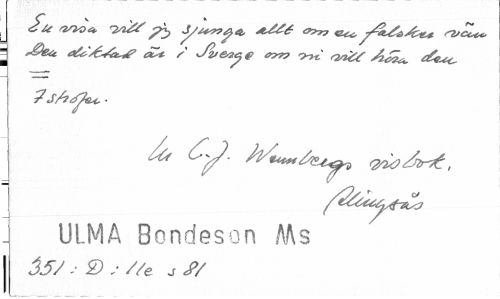 En visa vill jg sjunga allt om en falsker vän
Den diktad är i Sverge om ni vill höra den
=
7 strofer.
Ur C.J. Wennbergs visbok.
Alingsås
ULMA Bondeson Ms
351 : D : 11e s 81